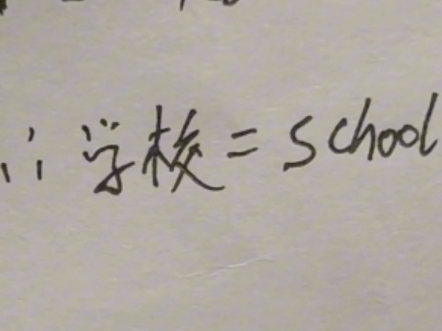 ∴ 学校 = school